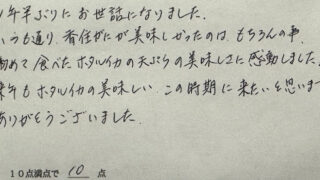 年半ぶりにお世話になりました。
いつも通り、香住がにが美味しかったのは、もちろんの事、
初めて食べたホタルイカの天ぷらの美味しさに感動しました。
来年もホタルイカの美味しい、この時期に来たいと思いま
ありがとうございました。
10点満点で 10 点